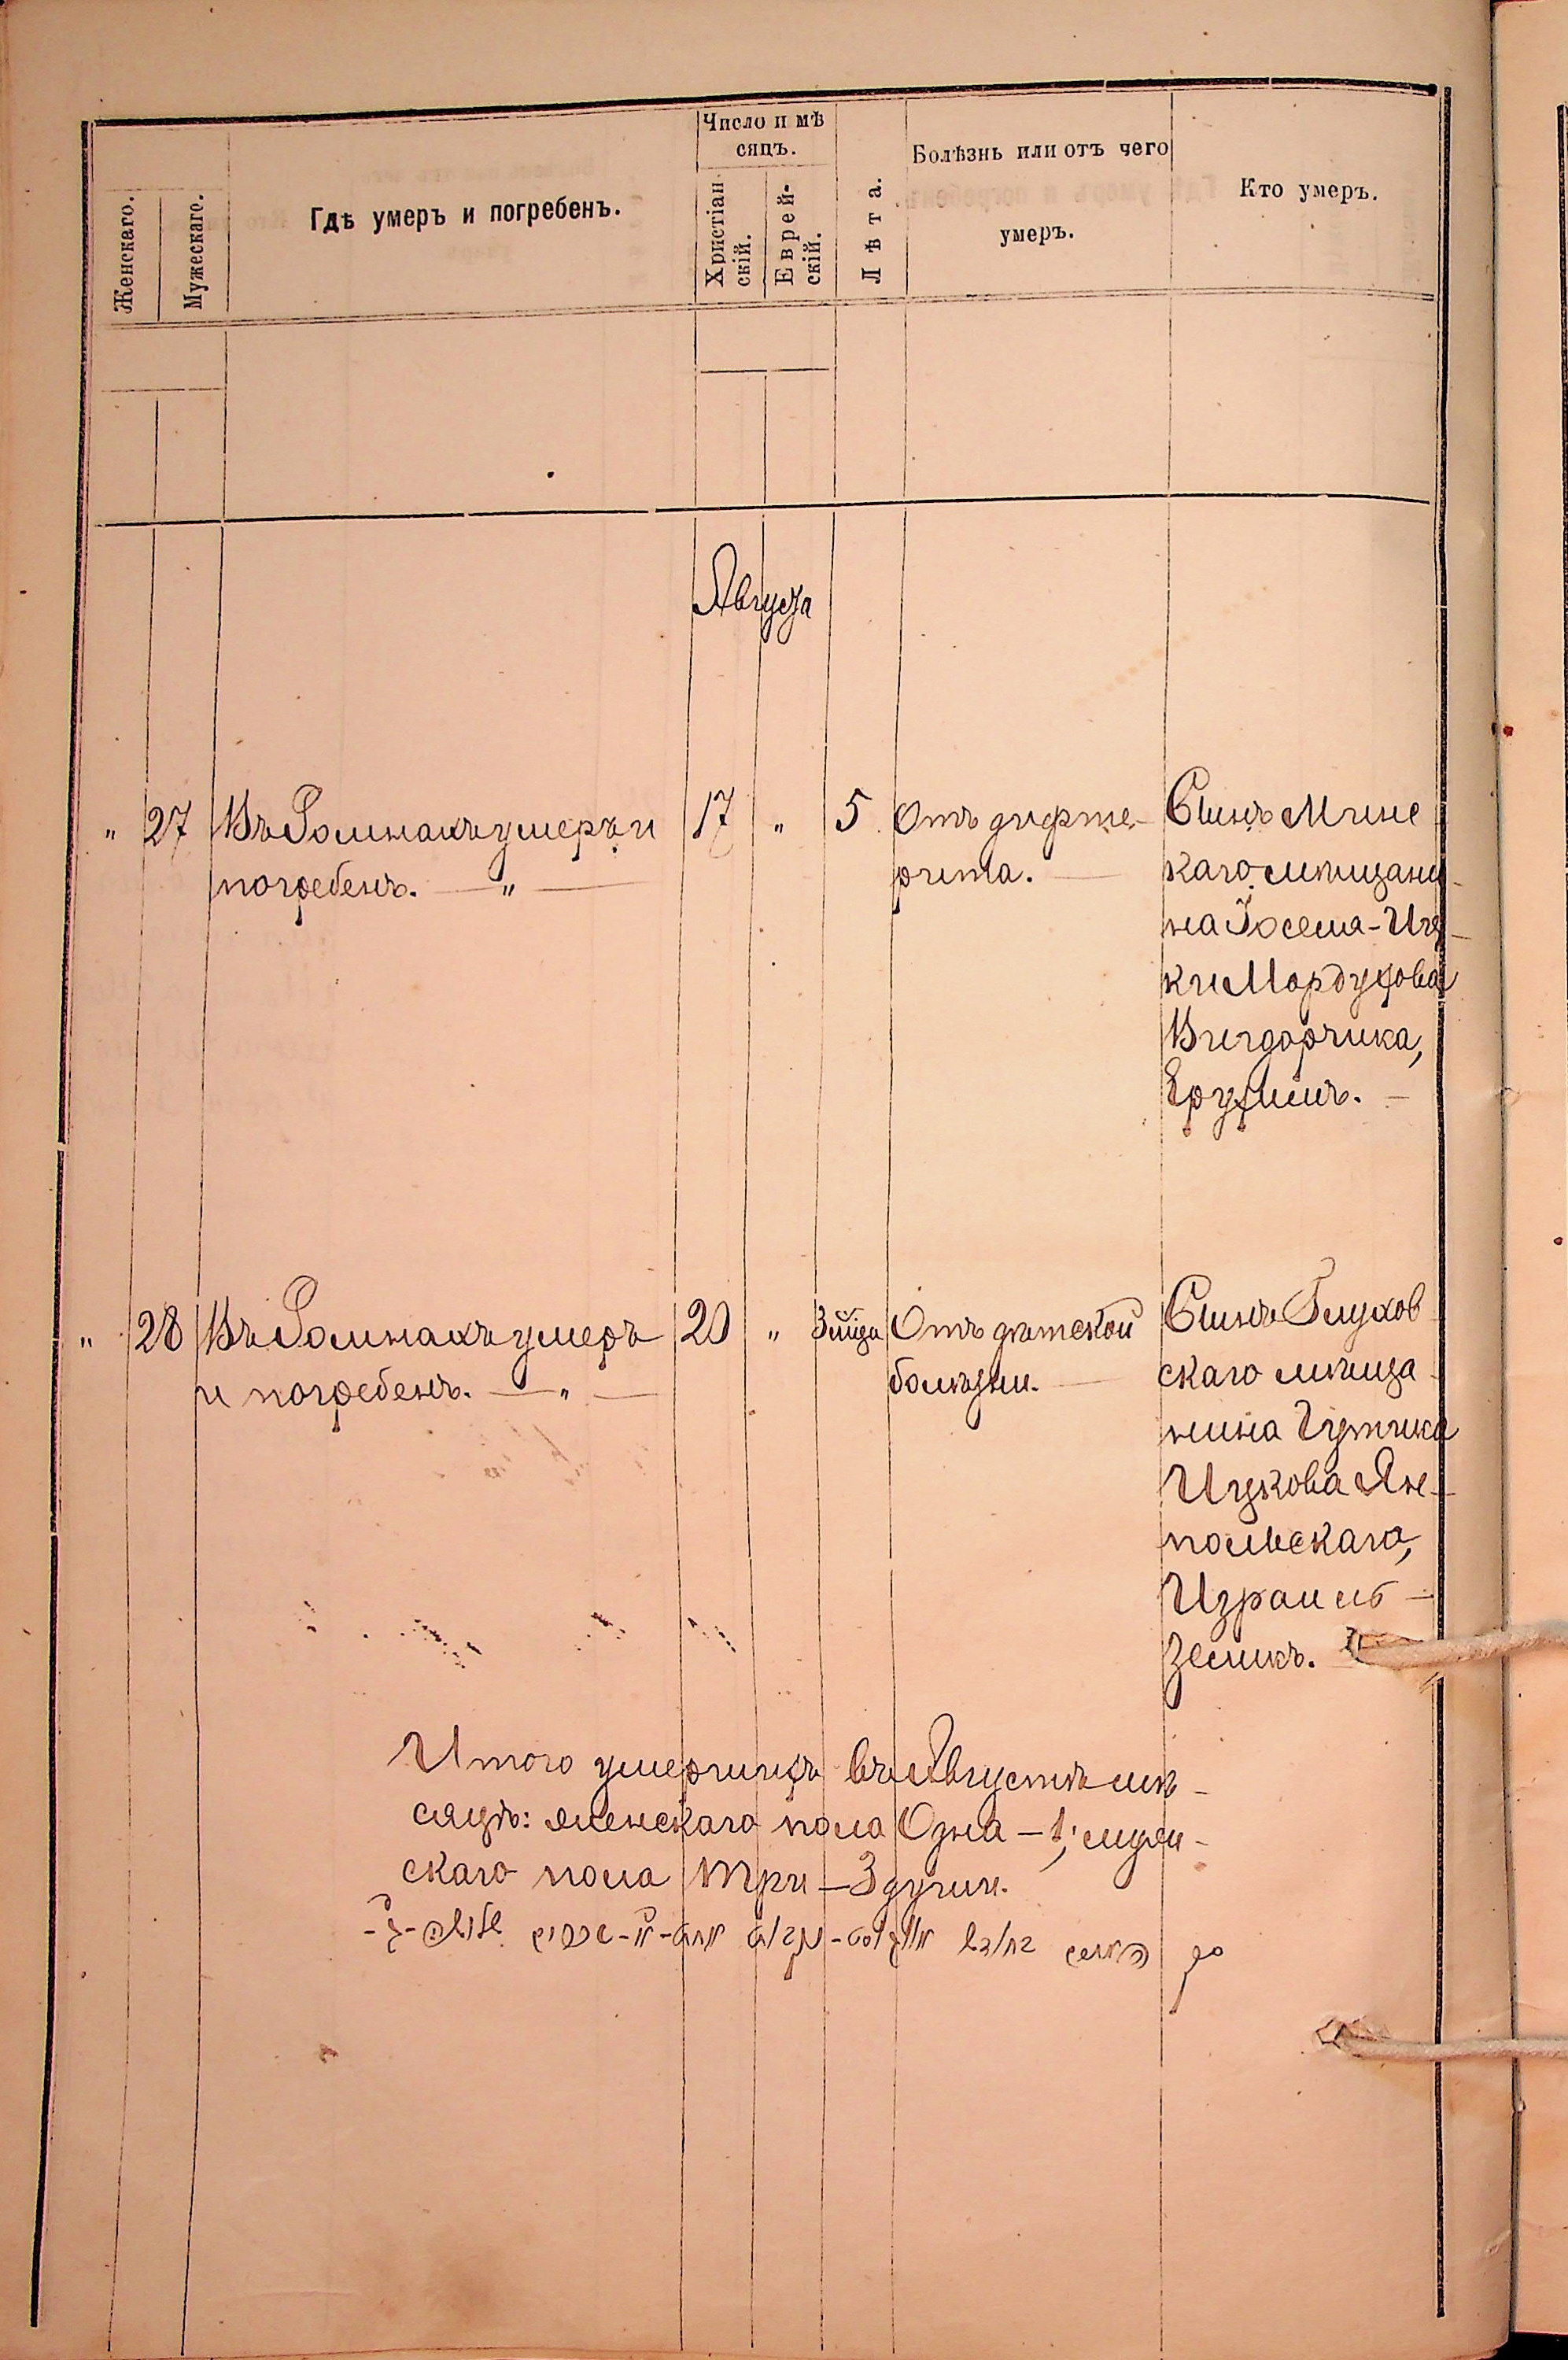 Женскаго.
Мужескаго.
Гдѣ умеръ и погребенъ.
Число и мѣ
сяцъ.
Христіан
скій.
Еврей-
скій.
Лѣта.
Болѣзнь или отъ чего
умеръ.
Кто умеръ.
Августа
" 27 Въ Ромнахъ умеръ и 17 " 5 Отъ дифте- Сынъ Минс
погребенъ. — " — рита. — каго мѣщани-
на Іосела-Иц-
ки Мордухова
Вигдорчика,
Ерухимъ. —
" 28 Въ Ромнахъ умеръ 20 " Отъ дѣтской Сынъ Глухов
и погребенъ. — " — болѣзни. — скаго мѣща-
нина Гутника
Ицкова Ям-
польскаго,
Израиль-
Зеликъ.
Итого умершихъ въ Августѣ мѣ-
сяцѣ: женскаго пола Одна — 1; муже-
скаго пола три — 3 души.